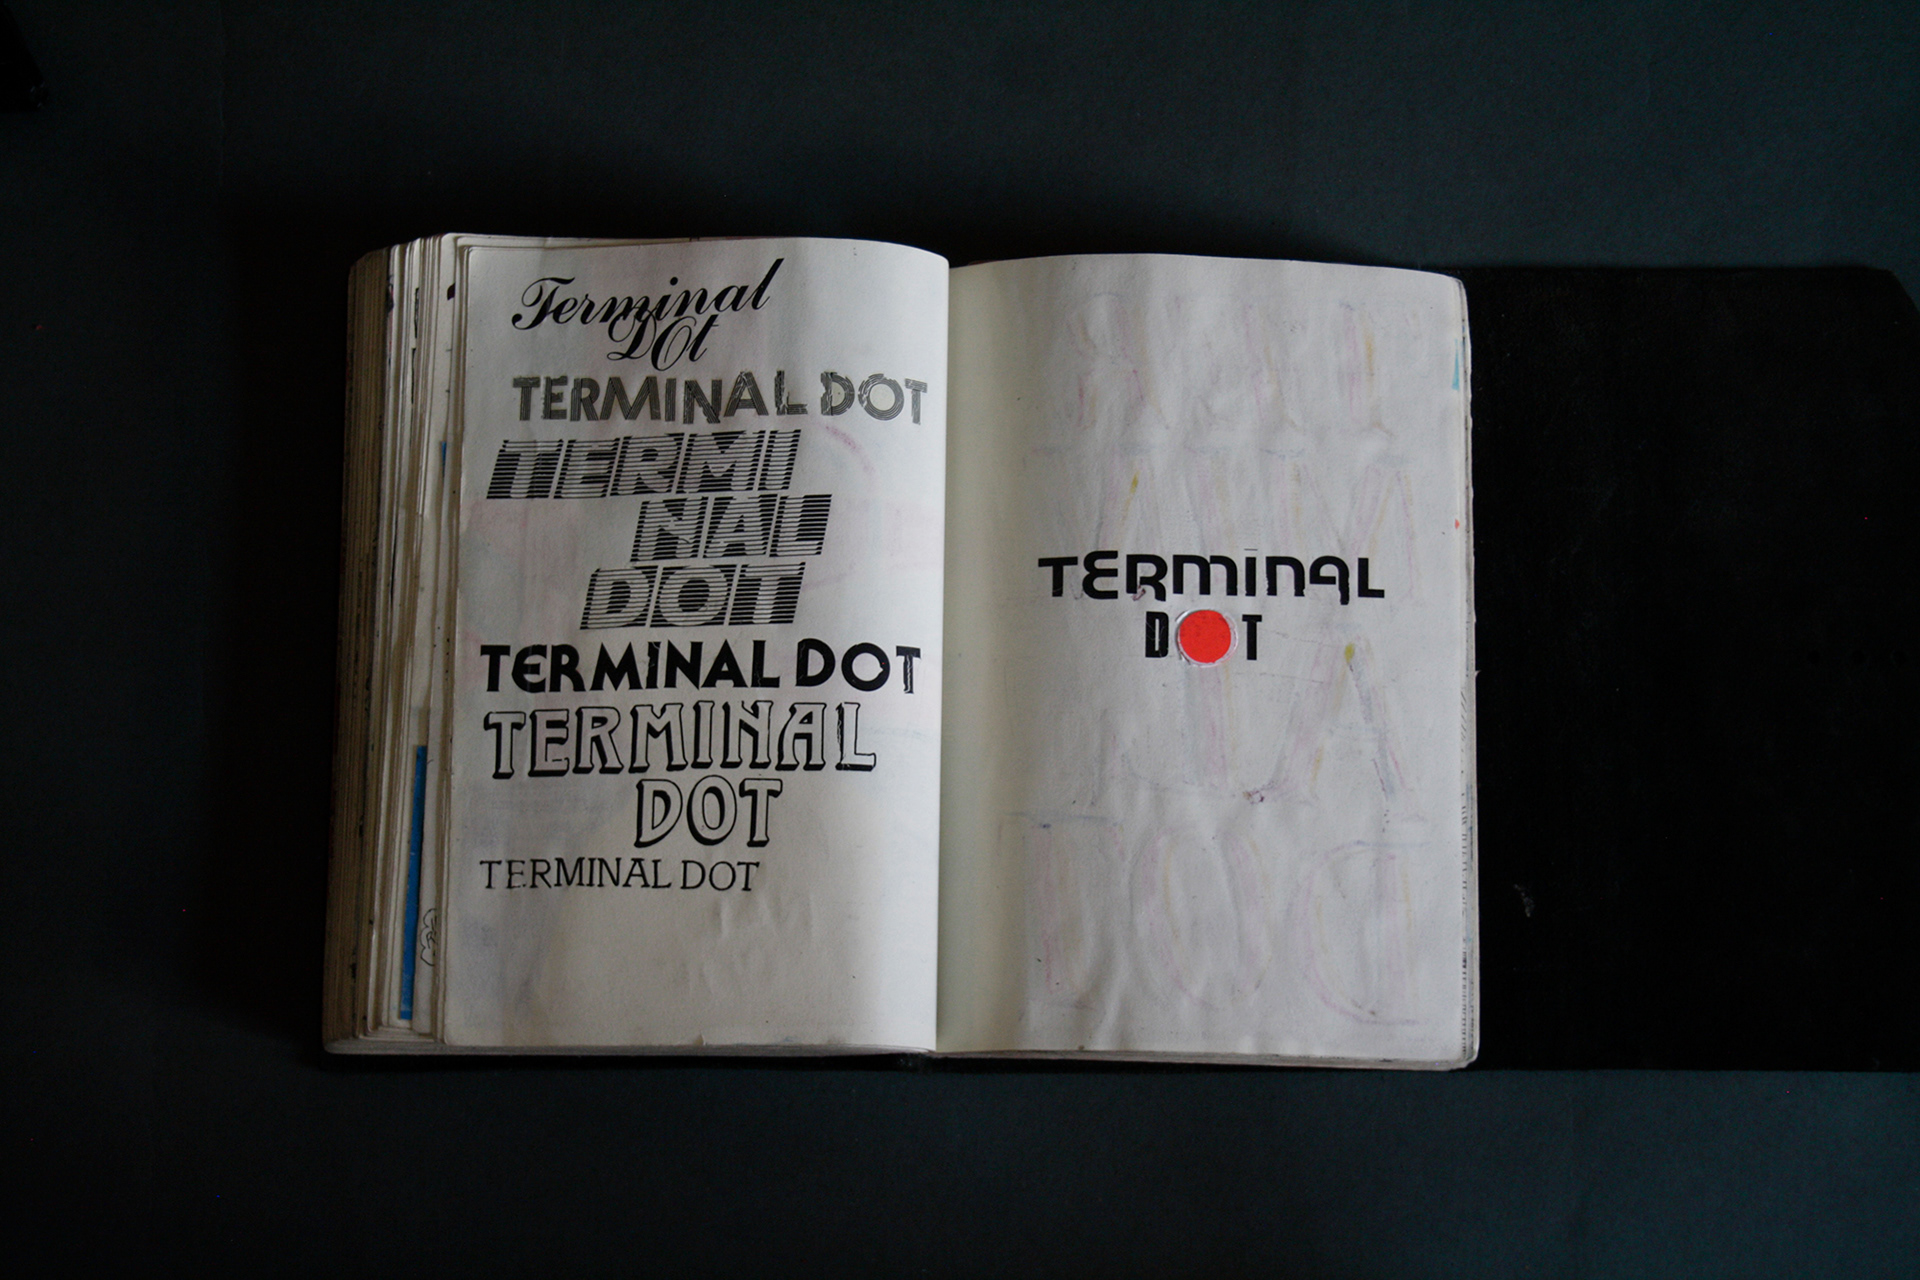 Terminal
Dot
TERMINAL DOT
TERMI
NAL
DOT
TERMINAL DOT
TERMINAL
DOT
TERMINAL DOT
TERmInAL
DOT